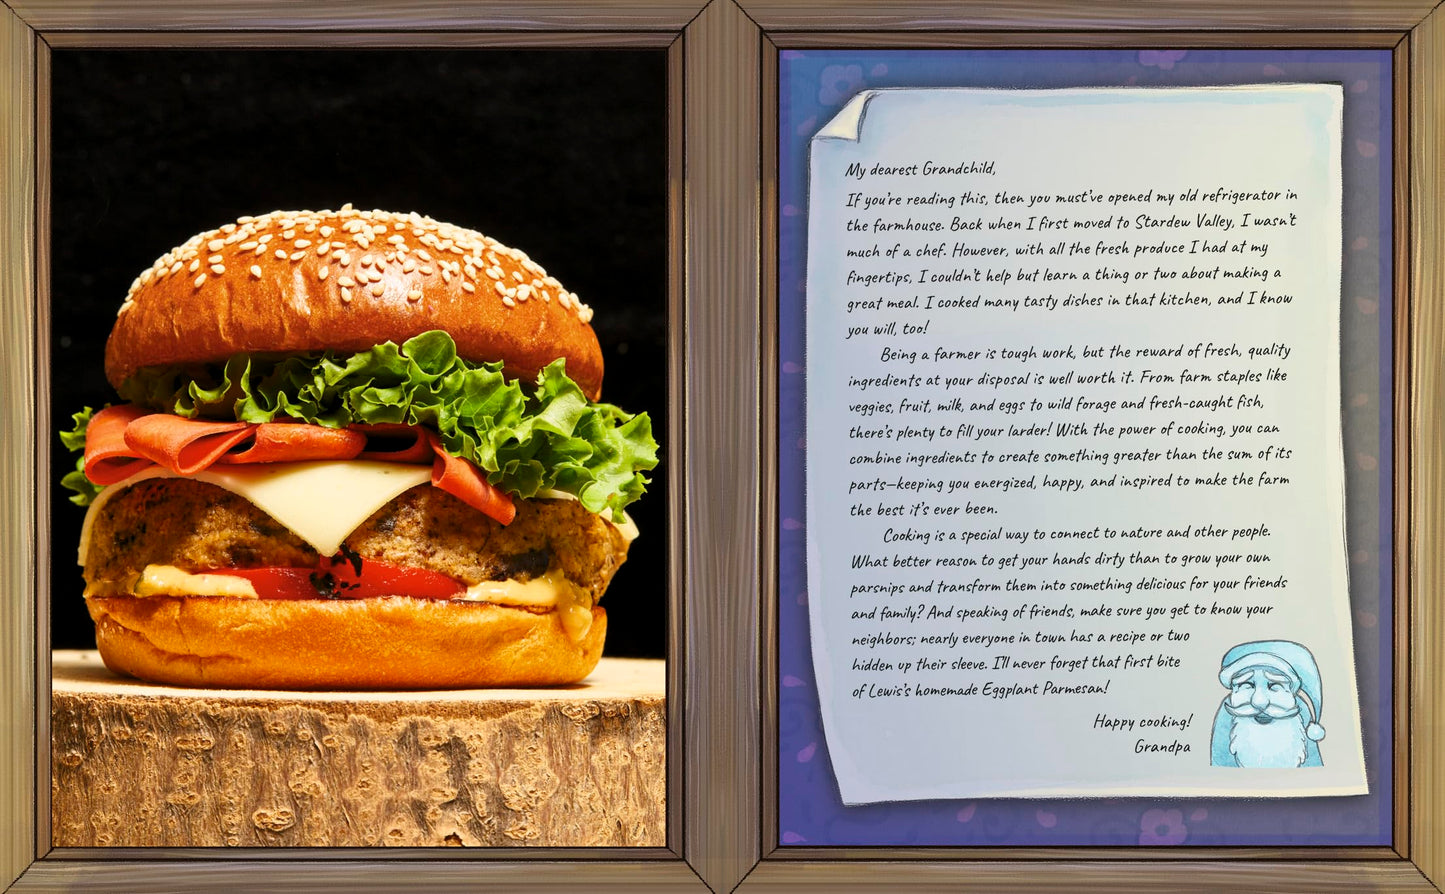 My dearest Grandchild,
If you're reading this, then you must've opened my old refrigerator in
the farmhouse. Back when I first moved to Stardew Valley, I wasn't
much of a chef. However, with all the fresh produce I had at my
fingertips, I couldn't help but learn a thing or two about making a
great meal. I cooked many tasty dishes in that kitchen, and I know
you will, too!
Being a farmer is tough work, but the reward of fresh, quality
ingredients at your disposal is well worth it. From farm staples like
veggies, fruit, milk, and eggs to wild forage and fresh-caught fish,
there's plenty to fill your larder! With the power of cooking, you can
combine ingredients to create something greater than the sum of its
parts—keeping you energized, happy, and inspired to make the farm
the best it's ever been.
Cooking is a special way to connect to nature and other people.
What better reason to get your hands dirty than to grow your own
parsnips and transform them into something delicious for your friends
and family? And speaking of friends, make sure you get to know your
neighbors; nearly everyone in town has a recipe or two
hidden up their sleeve. I'll never forget that first bite
of Lewis's homemade Eggplant Parmesan!
Happy cooking!
Grandpa